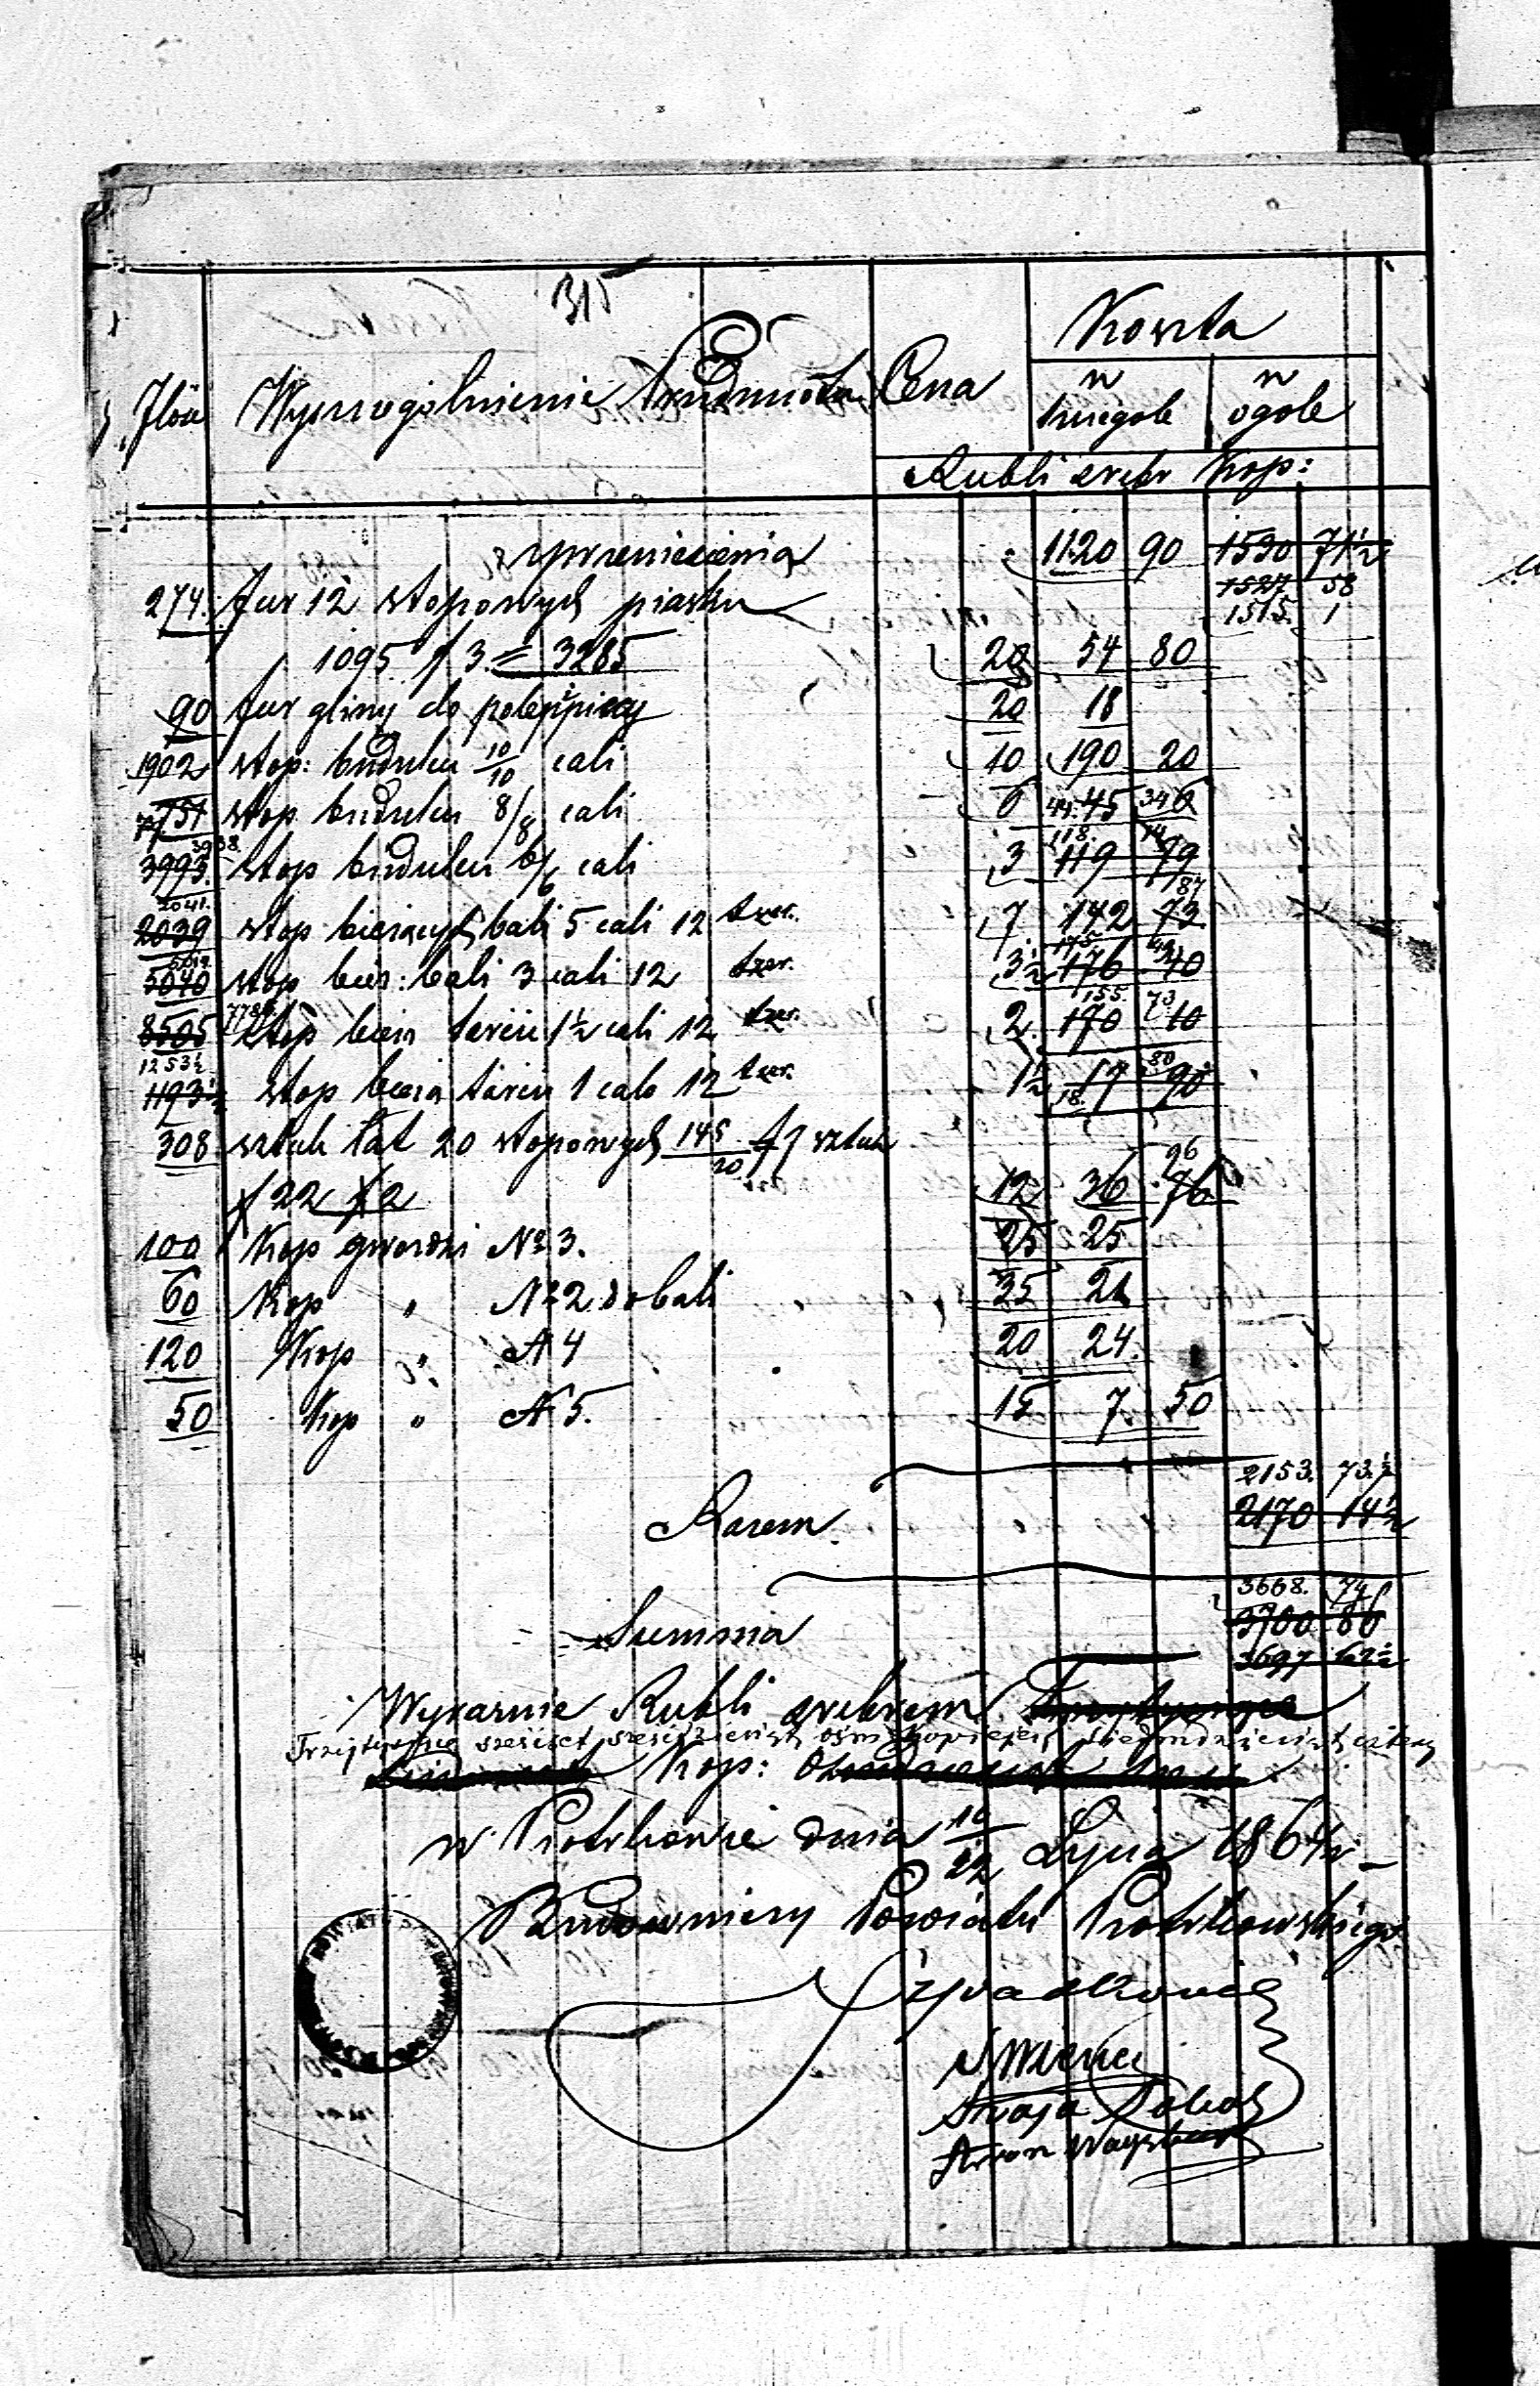 315
Ilość Wyszczególnienie Przedmiotu Cena Koszta
w szczególe w ogóle
Rubli srebr Kop:
z przeniesienia 1120 90 1530 71½
1527 58
274. fur 12 stopowych piasku 1515. 1
1095 / 3 = 3285 20 54 80
90 fur gliny do polepy piecy 20 18
1902 stop: budulcu 10/10 cali 10 190 20
751 stop budulcu 8/8 cali 6 44. 45 34 6
3938. 118. 14
3993. stop budulcu 6/6 cali 3 119 79
2041. 87
2039 stop bieżących bali 5 cali 12 szer. 7 142 73
175
5040 stop bież: bali 3 cali 12 szer. 3½ 176 40
155. 73
8505 stop bież tarcic 1½ cali 12 szer. 2 170 10
1253½ 80
1193½ stop bież tarcic 1 calo 12 szer. 1½ 18. 17 90
308 sztuk łat 20 stopowych 145/20 sztuk
96
/ 22 / 2 12 36 76
100 Kop gwoździ № 3. 25 25
60 Kop " № 2 do bali 35 21
120 Kop " № 4 20 24.
50 Kop " № 5. 15 7. 50
2153. 73.½
Razem 2170 14½
3668. 74
Summa 3700 86
3697 62½
Wyraźnie Rubli srebrem
Trzy tysiące sześćset sześćdziesiąt ośm kopiejek siedmdziesiąt cztery
Kop:
w Piotrkowie dnia 10/22 Lipca 1864 r.
Budowniczy Powiatu Piotrkowskiego